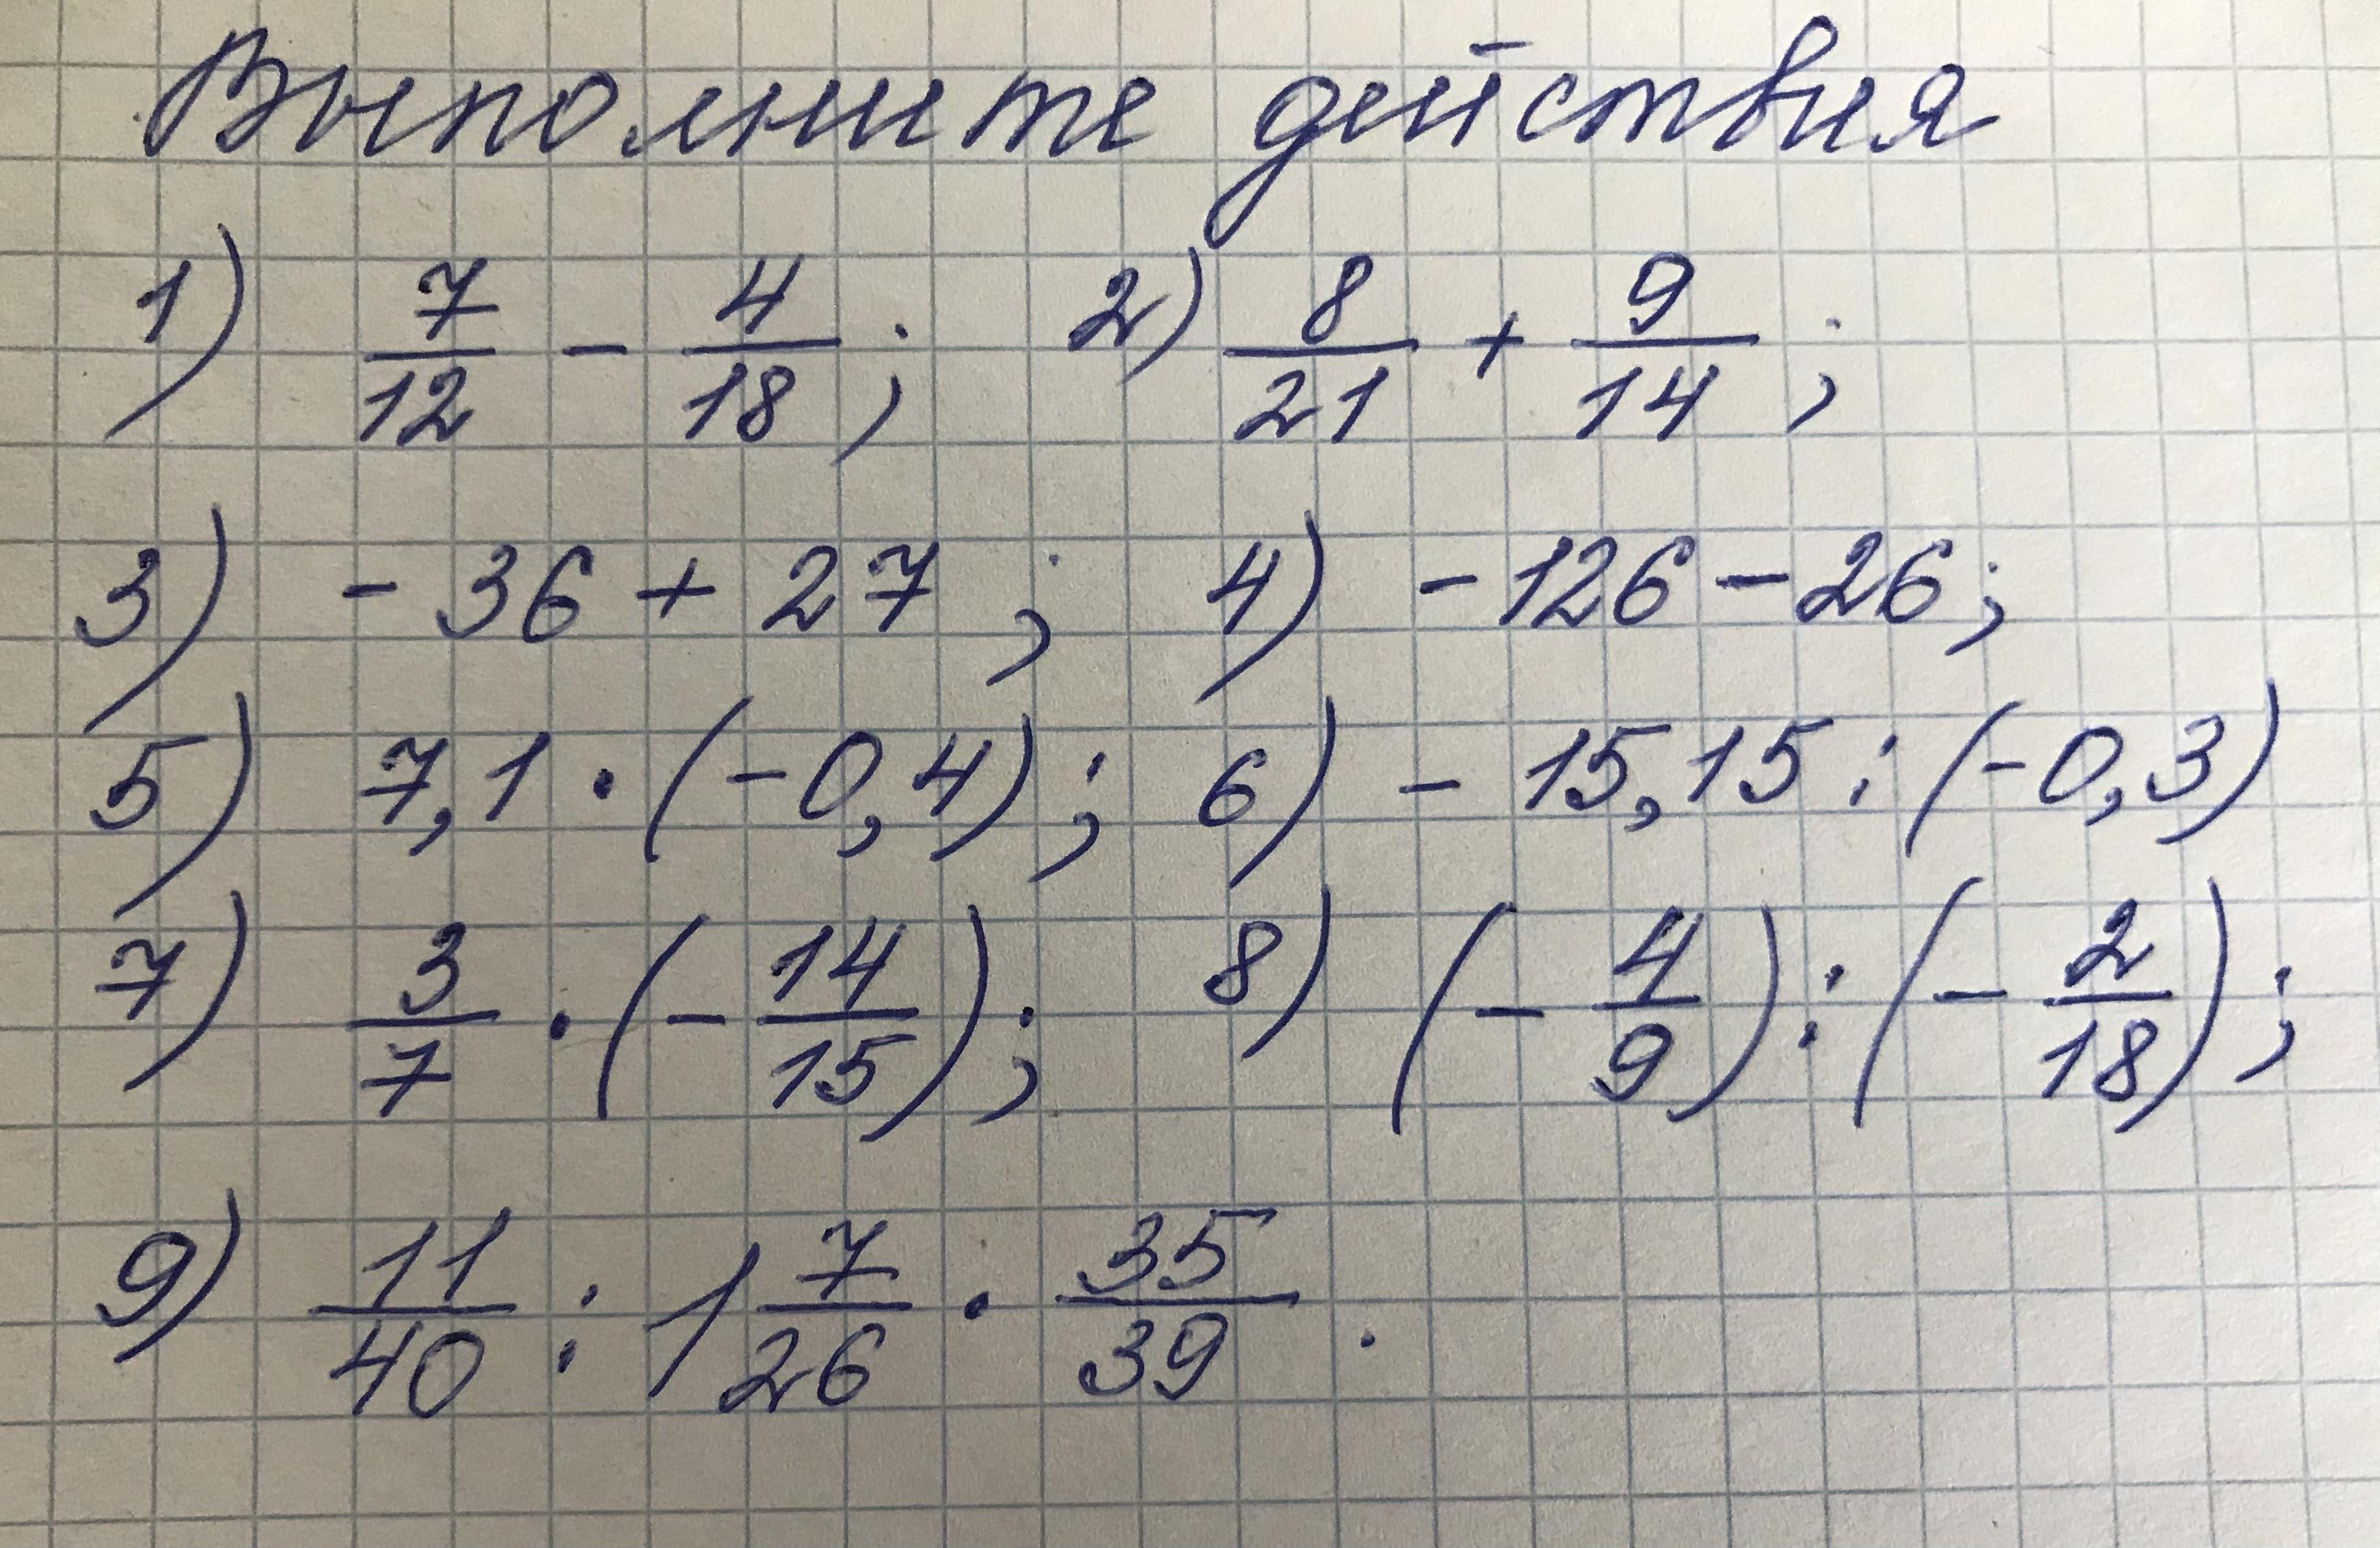 Выполните действия
1) 7/12 - 4/18; 2) 8/21 + 9/14;
3) - 36 + 27; 4) - 126 - 26;
5) 7,1 · (-0,4); 6) - 15,15 : (-0,3)
7) 3/7 · (- 14/15); 8) (- 4/9) : (- 2/18);
9) 11/40 : 1 7/26 · 35/39.